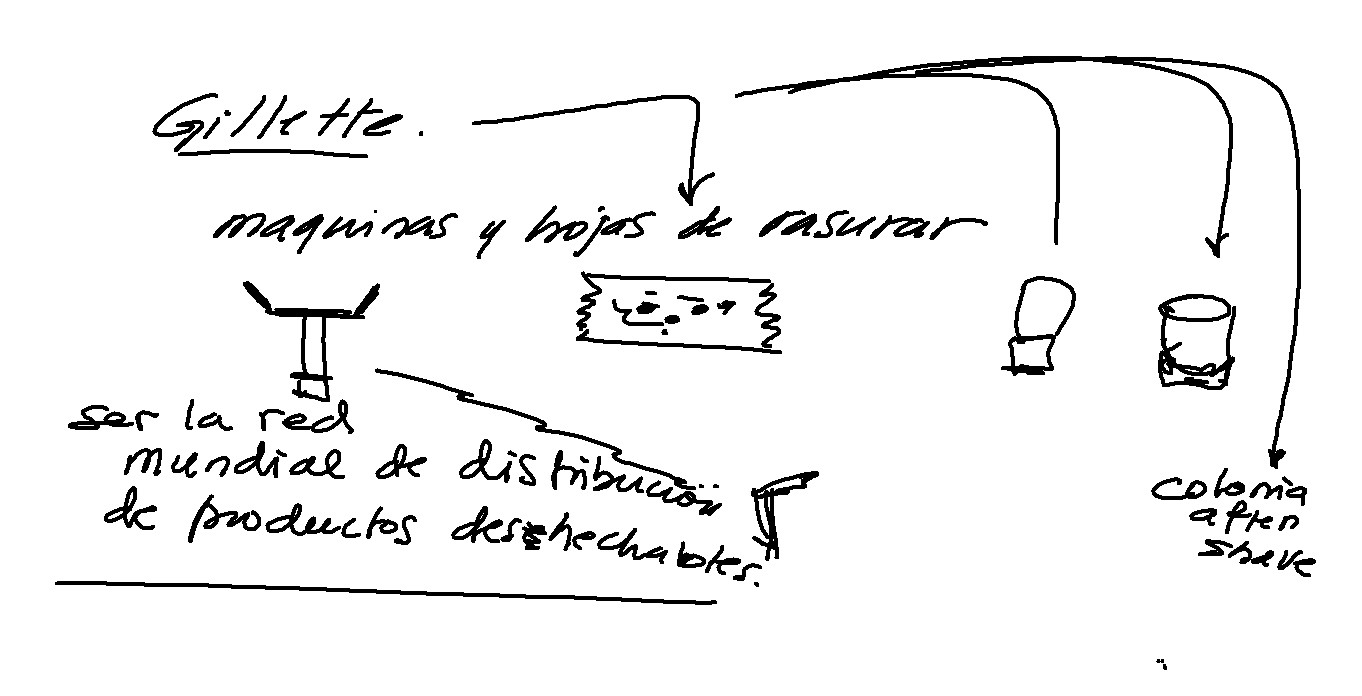 Gillette.
maquinas y hojas de rasurar
ser la red
mundial de distribución
de productos deshechables.
colonia
after
shave